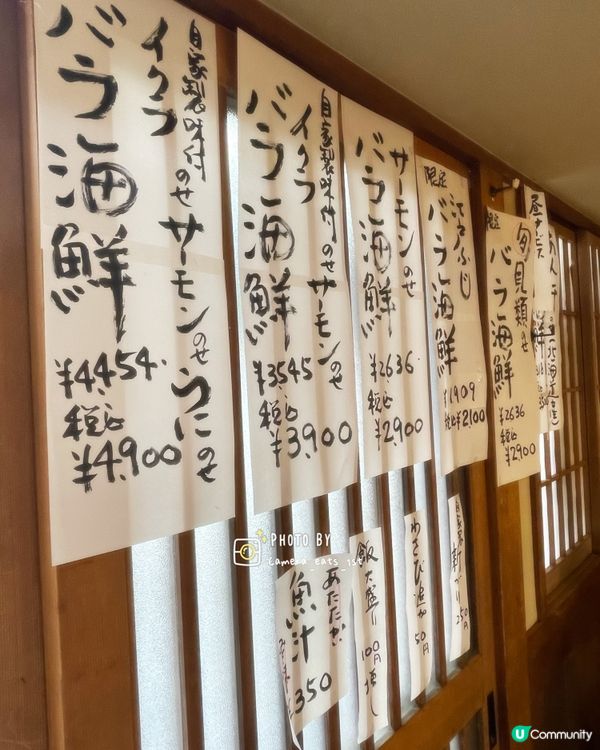 自家製味付のせサーモンのせうにのせ
イクラ
バラ海鮮
¥4454.
税込
¥4,900
自家製味付のせサーモンのせ
イクラ
バラ海鮮
¥3545
税込
¥3,900
サーモンのせ
バラ海鮮
¥2636
税込
¥2900
限定
江戸ふじ
バラ海鮮
¥1909
税込¥2100
限定
旬貝類のせ
バラ海鮮
¥2636
税込
¥2900
あたたかい
魚汁
¥350
飯大盛り
100円増し
わさび追加
50円
250円
PHOTO BY
camera_eats_1st
U Community